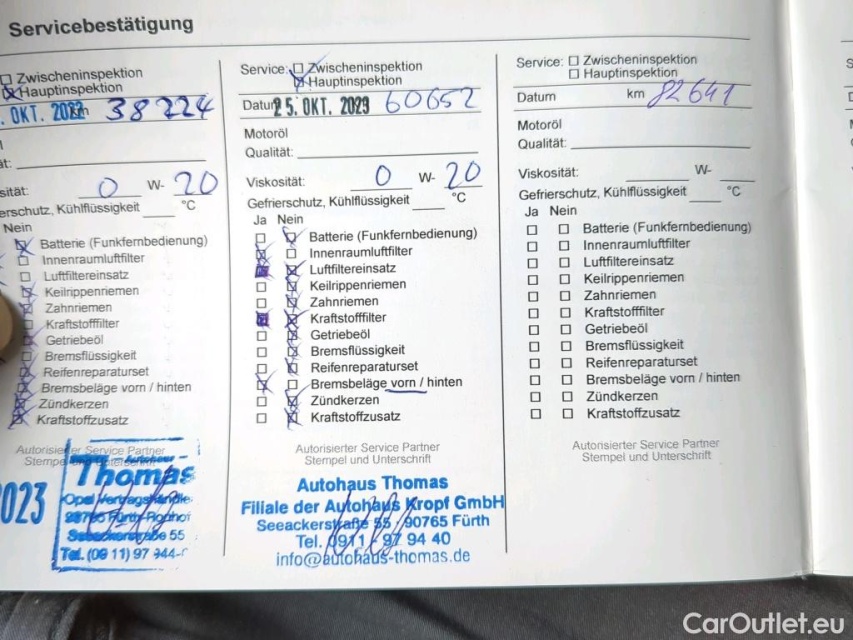 Servicebestätigung
Zwischeninspektion
Hauptinspektion
. OKT. 2022 km 38224
ät:
sität: 0 W- 20
erschutz, Kühlflüssigkeit °C
Nein
Batterie (Funkfernbedienung)
Innenraumluftfilter
Luftfiltereinsatz
Keilrippenriemen
Zahnriemen
Kraftstofffilter
Getriebeöl
Bremsflüssigkeit
Reifenreparaturset
Bremsbeläge vorn / hinten
Zündkerzen
Kraftstoffzusatz
Autorisierter Service Partner
Stempel und Unterschrift
2023
Thomas
Opel Vertragshändler
Seeackerstraße 55
Tel. (09 11) 97 944-
Service: Zwischeninspektion
Hauptinspektion
Datum 25. OKT. 2023 60652
Motoröl
Qualität:
Viskosität: 0 W- 20
Gefrierschutz, Kühlflüssigkeit °C
Ja Nein
Batterie (Funkfernbedienung)
Innenraumluftfilter
Luftfiltereinsatz
Keilrippenriemen
Zahnriemen
Kraftstofffilter
Getriebeöl
Bremsflüssigkeit
Reifenreparaturset
Bremsbeläge vorn / hinten
Zündkerzen
Kraftstoffzusatz
Autorisierter Service Partner
Stempel und Unterschrift
Autohaus Thomas
Filiale der Autohaus Kropf GmbH
Seeackerstraße 55, 90765 Fürth
Tel. 0911 - 97 94 40
info@autohaus-thomas.de
Service: Zwischeninspektion
Hauptinspektion
Datum km 82641
Motoröl
Qualität:
Viskosität: W-
Gefrierschutz, Kühlflüssigkeit °C
Ja Nein
Batterie (Funkfernbedienung)
Innenraumluftfilter
Luftfiltereinsatz
Keilrippenriemen
Zahnriemen
Kraftstofffilter
Getriebeöl
Bremsflüssigkeit
Reifenreparaturset
Bremsbeläge vorn / hinten
Zündkerzen
Kraftstoffzusatz
Autorisierter Service Partner
Stempel und Unterschrift
CarOutlet.eu